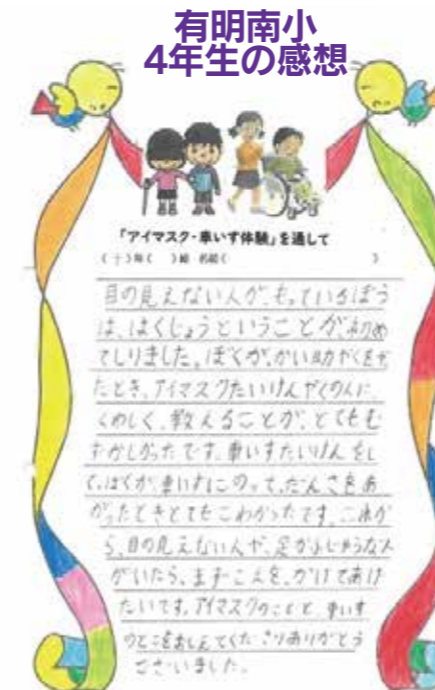 有明南小
4年生の感想
「アイマスク・車いす体験」を通して
(十)年( )組 名前( )
目の見えない人が、もっているぼう
は、はくじょうということが初め
てしりました。ぼくが、かい助やくをし
たとき、アイマスクたいけんやくの人に
くわしく、教えることが、とてもむ
ずかしかったです。車いすたいけんをし
て、ぼくが、車いすにのって、だんさをあ
がったときとてもこわかったです。これか
ら、目の見えない人や、足がふじゆうな人
がいたら、まずこえを、かけてあげ
たいです。アイマスクのことと、車いす
のことをおしえてくださりありがとう
ございました。